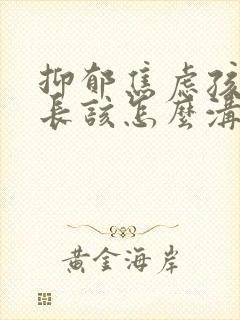 抑郁焦虑孩
長該怎麼溝
黃金海岸